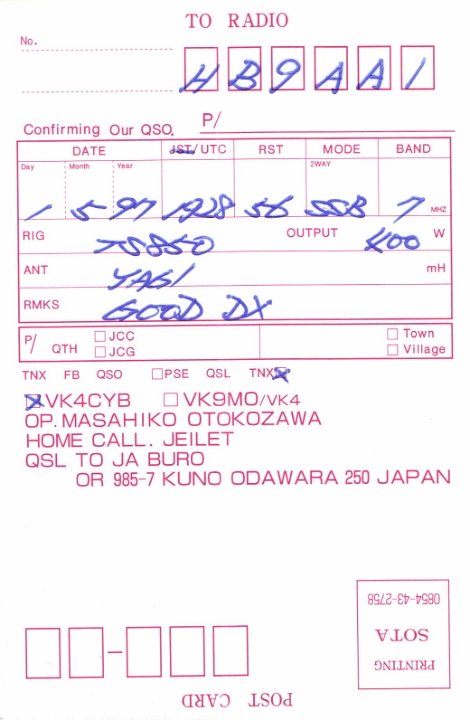 TO RADIO
No.
HB9AA1
Confirming Our QSO. P/
DATE JST/UTC RST MODE BAND
Day Month Year 2WAY
1 5 97 1928 56 SSB 7 MHZ
RIG TS850 OUTPUT 400 W
ANT YAGI mH
RMKS GOOD DX
P/ QTH □ JCC □ Town
□ JCG □ Village
TNX FB QSO □PSE QSL TNX☒
☒VK4CYB □ VK9MO/VK4
OP. MASAHIKO OTOKOZAWA
HOME CALL. JEILET
QSL TO JA BURO
OR 985-7 KUNO ODAWARA 250 JAPAN
POST CARD
PRINTING
SOTA
0854-43-2758